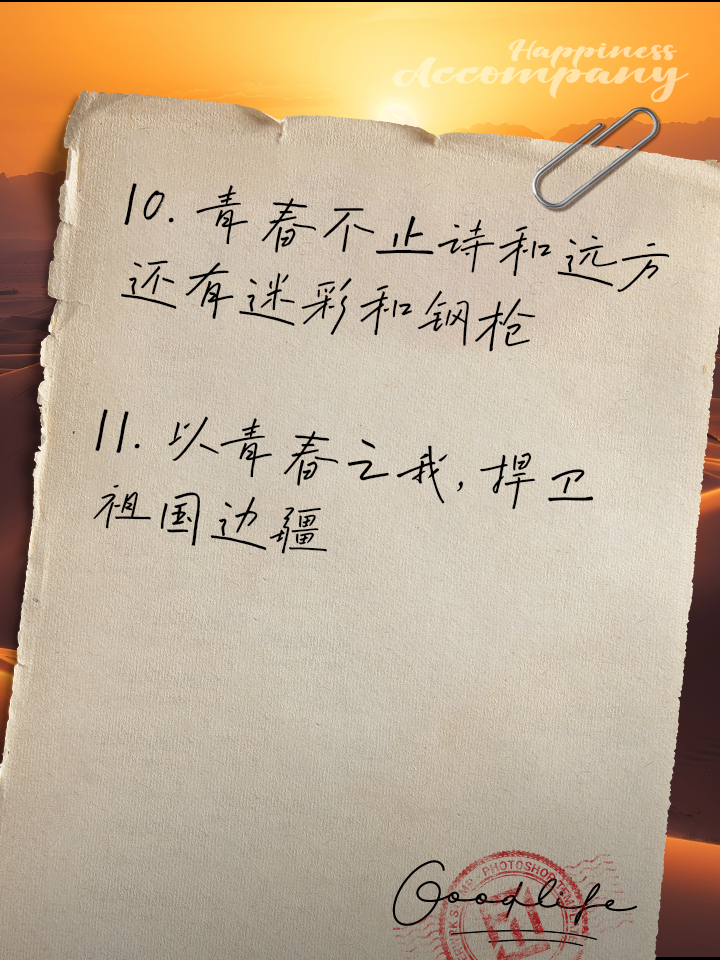 Happiness
Accompany
10. 青春不止诗和远方
还有迷彩和钢枪
11. 以青春之我,捍卫
祖国边疆
PHOTOSHOP
Goodlife